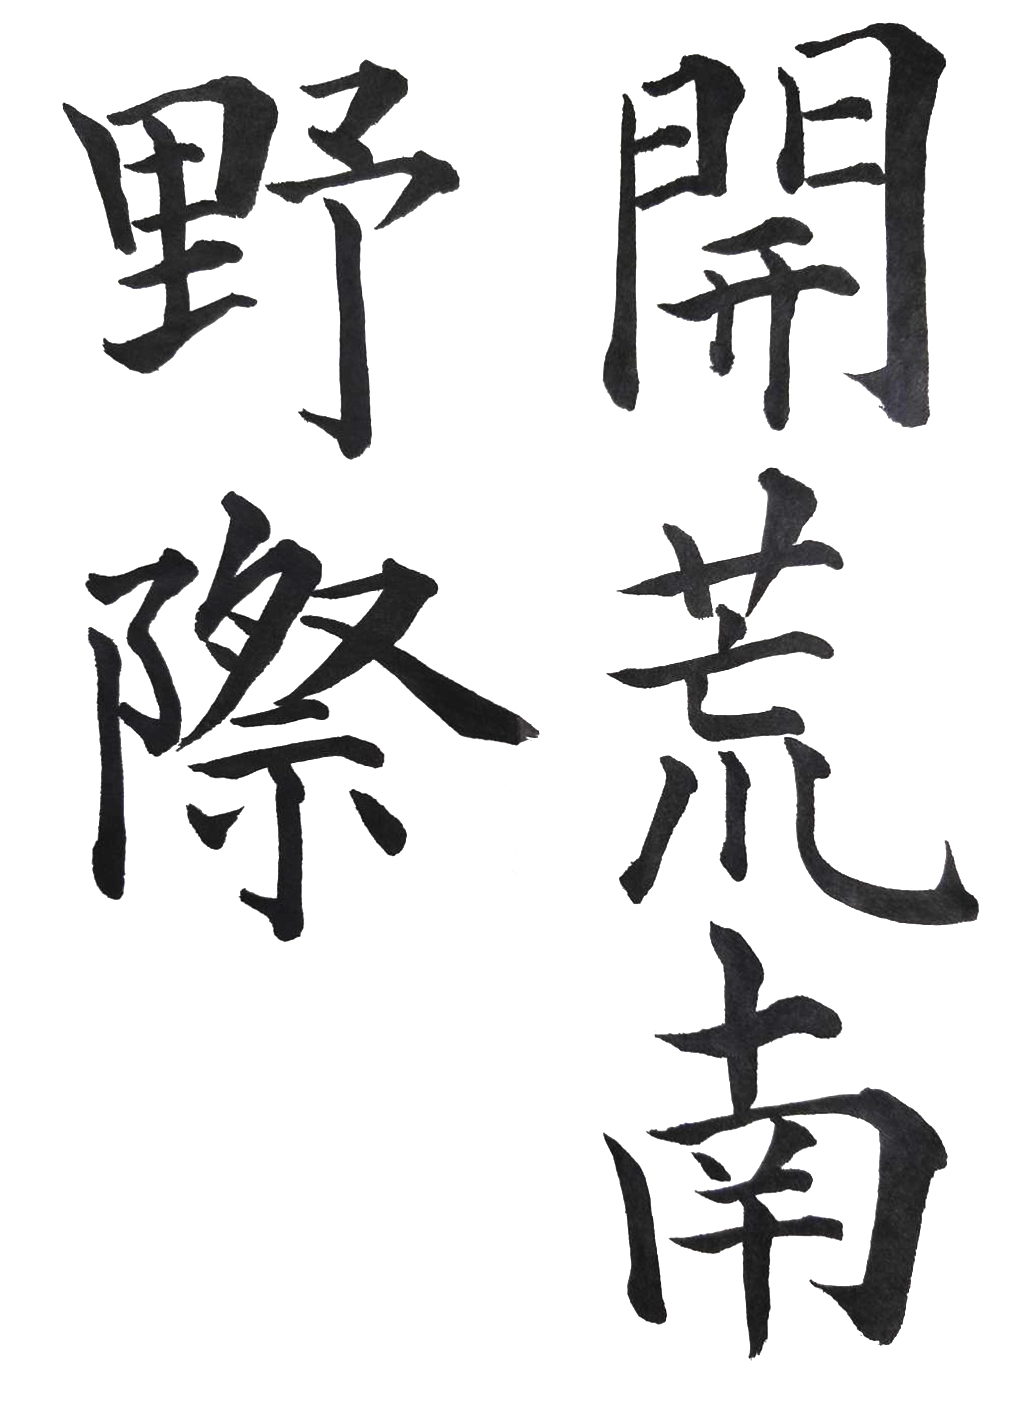 開荒南
野際